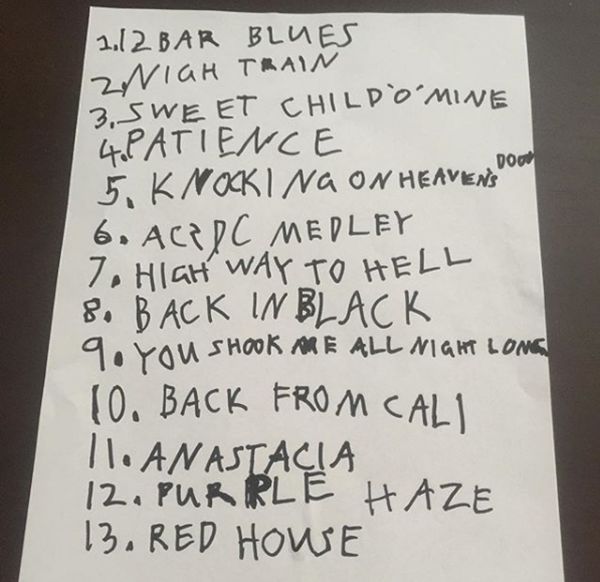 1.12 BAR BLUES
2.NIGH TRAIN
3.SWEET CHILD'O'MINE
4.PATIENCE
5. KNOCKING ON HEAVEN'S DOOR
6. AC⚡DC MEDLEY
7. HIGH WAY TO HELL
8. BACK IN BLACK
9. YOU SHOOK ME ALL NIGHT LONG
10. BACK FROM CALI
11. ANASTACIA
12. PURPLE HAZE
13. RED HOUSE